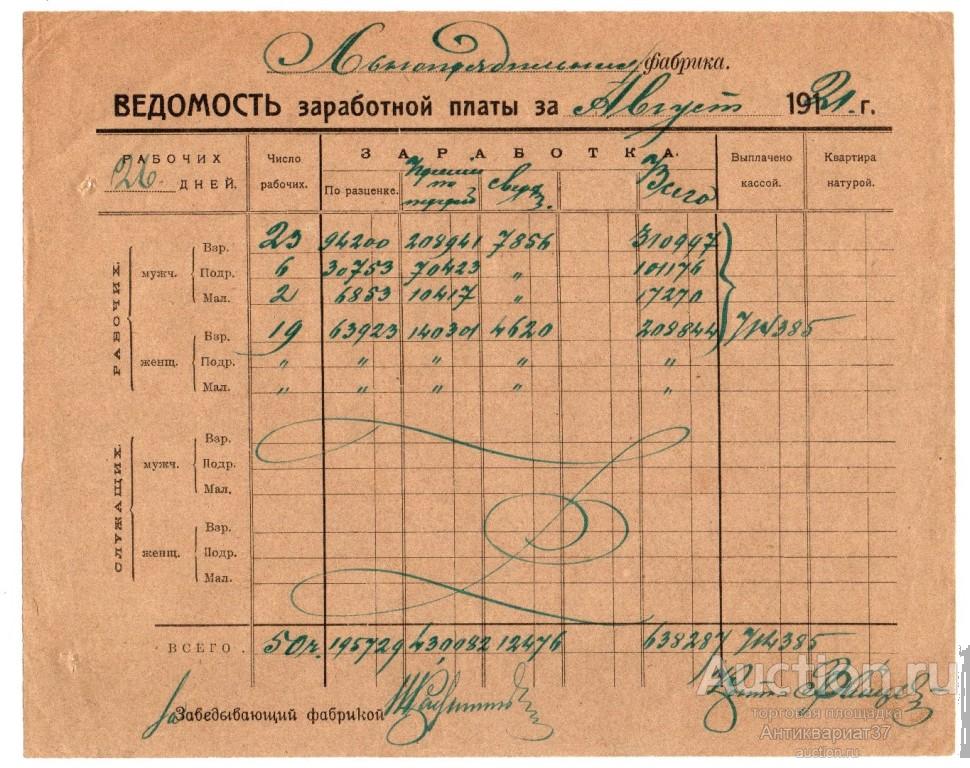 Льнопрядильная фабрика.
ВЕДОМОСТЬ заработной платы за Август 1921 г.
РАБОЧИХ 26 ДНЕЙ.
Число рабочих.
ЗАРАБОТКА.
По разценке. Сверх. Всего
Выплачено кассой.
Квартира натурой.
РАБОЧИХ.
мужч.
Взр. 23 94200 208941 7856 310997
Подр. 6 30753 70423 " 101176
Мал. 2 6853 10417 " 17270
женщ.
Взр. 19 63923 140301 4620 208844
Подр. " " " " "
Мал. " " " " "
СЛУЖАЩИХ.
мужч.
Взр.
Подр.
Мал.
женщ.
Взр.
Подр.
Мал.
ВСЕГО. 50 195729 430082 12476 638287
Заведывающий фабрикой
Auction.ru
торговая площадка
Антиквариат37
auction.ru